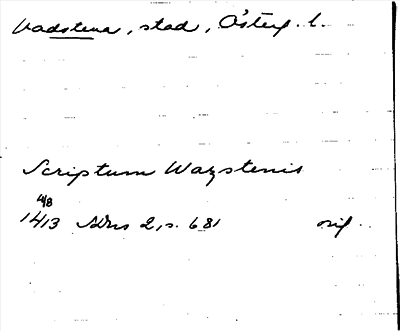 Vadstena, stad, Österg. l.
Scriptum Wazstenis
4/8
1413 SDns 2, s. 681 orig.